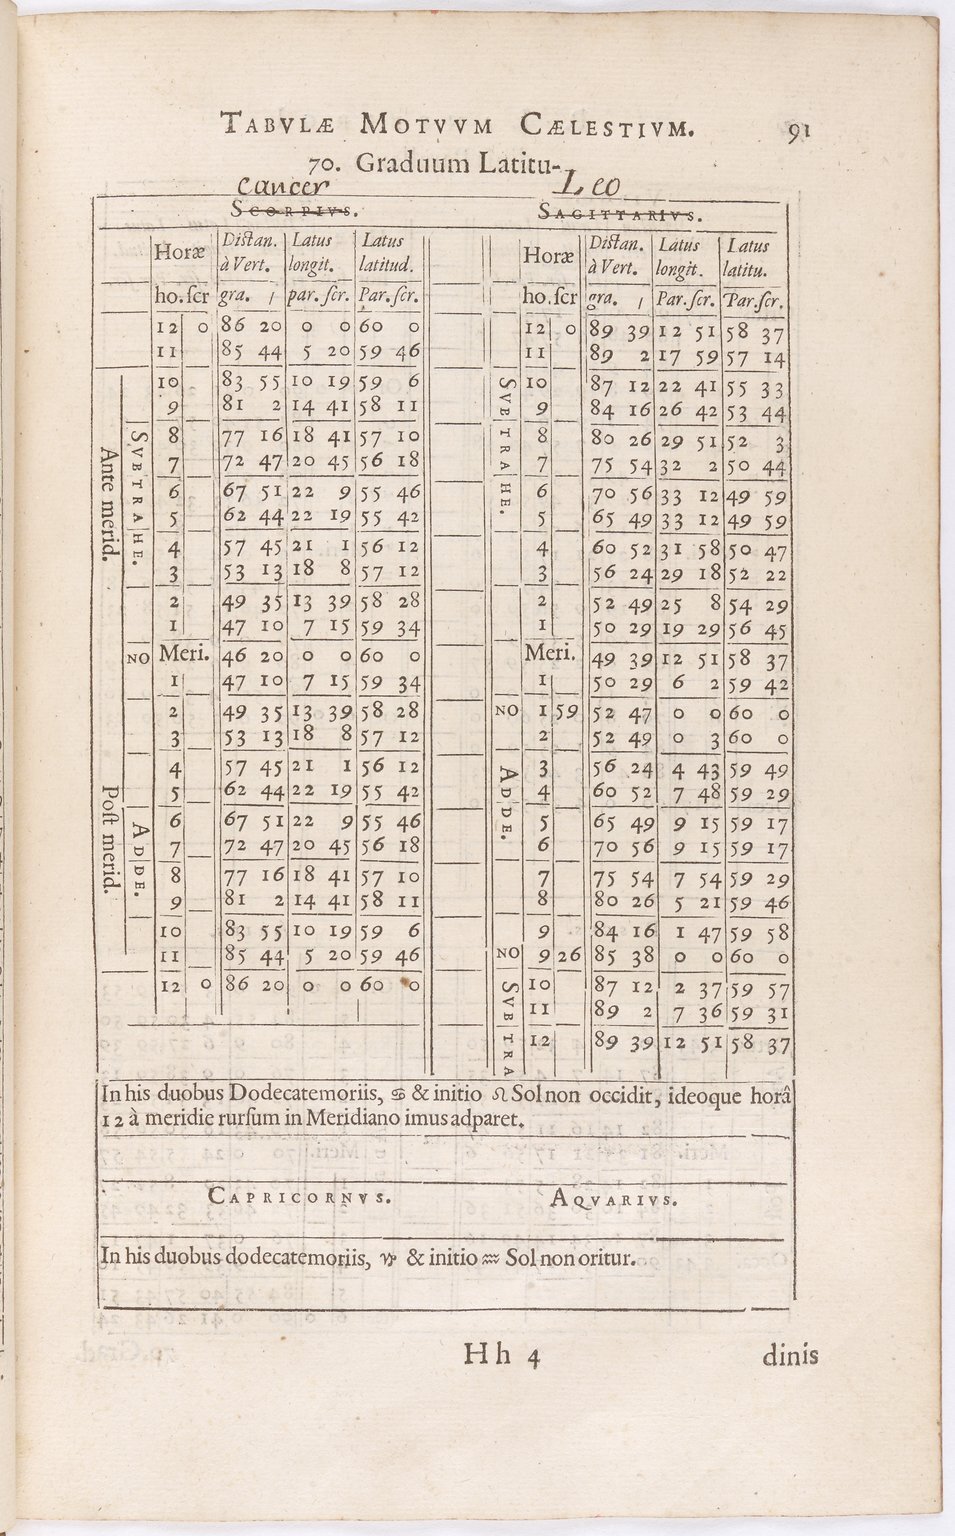 TABVLÆ MOTVVM CÆLESTIVM. 91
70. Graduum Latitu-
Cancer Leo
SCORPIVS. SAGITTARIVS.
Horæ Distan. à Vert. Latus longit. Latus latitud. Horæ Distan. à Vert. Latus longit. Latus latitu.
ho. ſcr gra. / par. ſcr. Par. ſcr. ho. ſcr gra. / Par. ſcr. Par. ſcr.
Ante merid.
SVBTRAHE.
SVBTRAHE.
12 0 86 20 0 0 60 0 12 0 89 39 12 51 58 37
11 85 44 5 20 59 46 11 89 2 17 59 57 14
10 83 55 10 19 59 6 10 87 12 22 41 55 33
9 81 2 14 41 58 11 9 84 16 26 42 53 44
8 77 16 18 41 57 10 8 80 26 29 51 52 3
7 72 47 20 45 56 18 7 75 54 32 2 50 44
6 67 51 22 9 55 46 6 70 56 33 12 49 59
5 62 44 22 19 55 42 5 65 49 33 12 49 59
4 57 45 21 1 56 12 4 60 52 31 58 50 47
3 53 13 18 8 57 12 3 56 24 29 18 52 22
2 49 35 13 39 58 28 2 52 49 25 8 54 29
1 47 10 7 15 59 34 1 50 29 19 29 56 45
NO Meri. 46 20 0 0 60 0 Meri. 49 39 12 51 58 37
1 47 10 7 15 59 34 1 50 29 6 2 59 42
2 49 35 13 39 58 28 NO 1 59 52 47 0 0 60 0
3 53 13 18 8 57 12 2 52 49 0 3 60 0
Poſt merid.
ADDE.
ADDE.
4 57 45 21 1 56 12 3 56 24 4 43 59 49
5 62 44 22 19 55 42 4 60 52 7 48 59 29
6 67 51 22 9 55 46 5 65 49 9 15 59 17
7 72 47 20 45 56 18 6 70 56 9 15 59 17
8 77 16 18 41 57 10 7 75 54 7 54 59 29
9 81 2 14 41 58 11 8 80 26 5 21 59 46
10 83 55 10 19 59 6 9 84 16 1 47 59 58
11 85 44 5 20 59 46 NO 9 26 85 38 0 0 60 0
12 0 86 20 0 0 60 0 10 87 12 2 37 59 57
SVBTRA
11 89 2 7 36 59 31
12 89 39 12 51 58 37
In his duobus Dodecatemoriis, ♋ & initio ♌ Sol non occidit, ideoque horâ
12 à meridie rurſum in Meridiano imus adparet.
CAPRICORNVS. AQVARIVS.
In his duobus dodecatemoriis, ♑ & initio ♒ Sol non oritur.
Hh 4 dinis